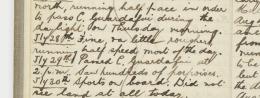 north, running half pace in order
to pass C. Guardafui during the
daylight on Thursday morning.
July 28th Fine, on little rougher
running half speed most of the day.
July 29th Passed C. Guardafui at
2. p.m. Saw hundreds of porpoises.
July 30th Sports on board. Did not
see land at all today.